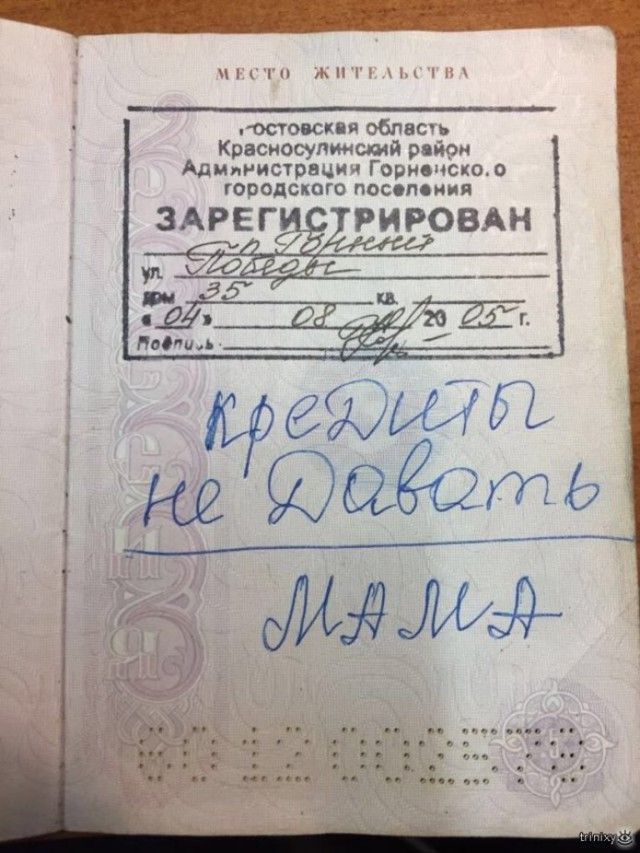 МЕСТО ЖИТЕЛЬСТВА
остовская область
Красносулинский район
Администрация Горненского
городского поселения
ЗАРЕГИСТРИРОВАН
п. Горный
ул. Победы
дом 35 кв.
«04» 08 2005 г.
Подпись
кредиты
не давать
МАМА
trinixy